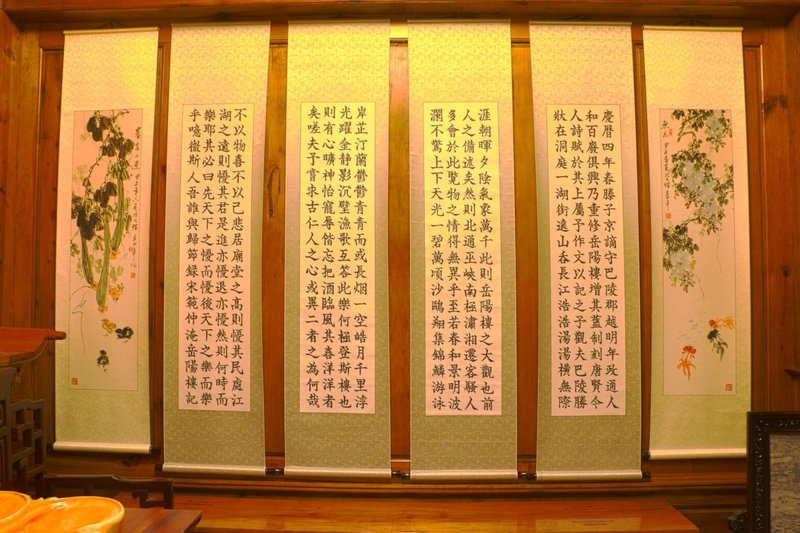 慶曆四年春滕子京謫守巴陵郡越明年政通人
和百廢俱興乃重修岳陽樓增其舊制刻唐賢今
人詩賦於其上屬予作文以記之予觀夫巴陵勝
狀在洞庭一湖銜遠山吞長江浩浩湯湯橫無際
涯朝暉夕陰氣象萬千此則岳陽樓之大觀也前
人之備述矣然則北通巫峽南極瀟湘遷客騷人
多會於此覽物之情得無異乎至若春和景明波
瀾不驚上下天光一碧萬頃沙鷗翔集錦鱗游泳
岸芷汀蘭鬱鬱青青而或長烟一空皓月千里浮
光躍金靜影沉璧漁歌互答此樂何極登斯樓也
則有心曠神怡寵辱偕忘把酒臨風其喜洋洋者
矣嗟夫予嘗求古仁人之心或異二者之為何哉
不以物喜不以己悲居廟堂之高則懮其民處江
湖之遠則懮其君是進亦懮退亦懮然則何時而
樂耶其必曰先天下之懮而懮後天下之樂而樂
乎噫微斯人吾誰與歸節錄宋範仲淹岳陽樓記